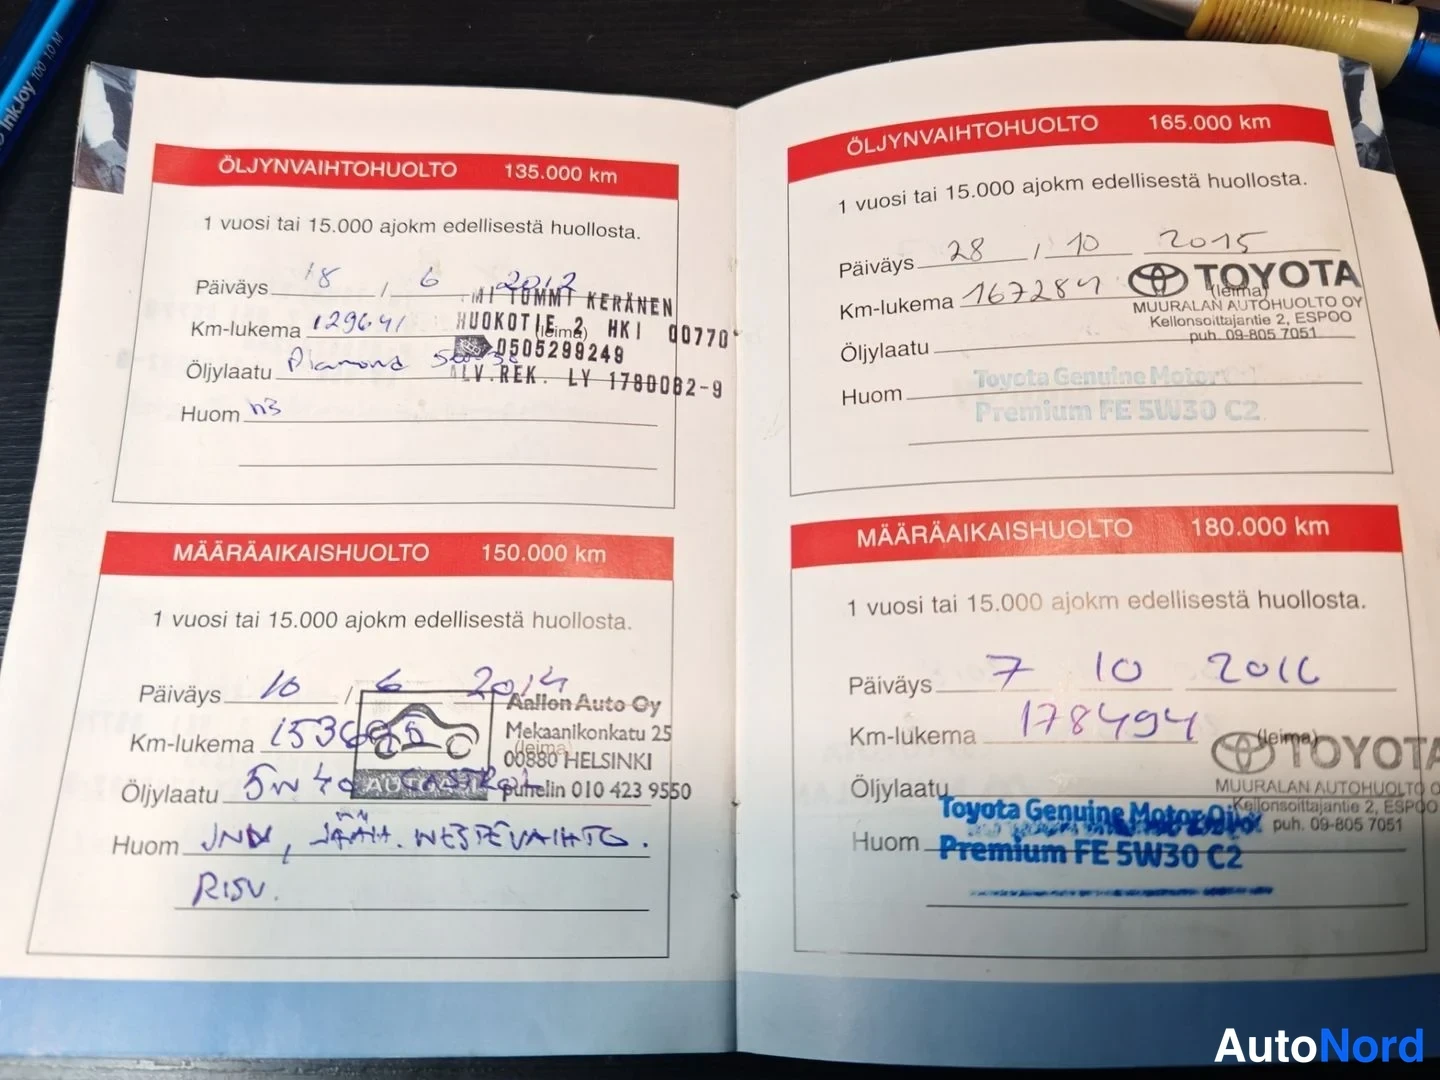 InkJoy 100 1.0 M
ÖLJYNVAIHTOHUOLTO 135.000 km
1 vuosi tai 15.000 ajokm edellisestä huollosta.
Päiväys 18 / 6 2012
Km-lukema 129641 (leima)
Öljylaatu Diamond
Huom
TMI TOMMI KERÄNEN
HUOKOTIE 2 HKI 00770
0505299249
ALV.REK. LY 1780082-9
MÄÄRÄAIKAISHUOLTO 150.000 km
1 vuosi tai 15.000 ajokm edellisestä huollosta.
Päiväys 10 / 6 2014
Km-lukema (leima)
Öljylaatu 5W40 CASTROL
Huom JNN, JÄÄH. NESTEVAIHTO.
RISU.
Aallon Auto Oy
Mekaanikonkatu 25
00880 HELSINKI
puhelin 010 423 9550
ÖLJYNVAIHTOHUOLTO 165.000 km
1 vuosi tai 15.000 ajokm edellisestä huollosta.
Päiväys 28 / 10 2015
Km-lukema 167284 (leima)
Öljylaatu
Huom
TOYOTA
MUURALAN AUTOHUOLTO OY
Kellonsoittajantie 2, ESPOO
puh. 09-805 7051
Toyota Genuine Motor
Premium FE 5W30 C2
MÄÄRÄAIKAISHUOLTO 180.000 km
1 vuosi tai 15.000 ajokm edellisestä huollosta.
Päiväys 7 10 2016
Km-lukema 178494 (leima)
Öljylaatu
Huom
TOYOTA
MUURALAN AUTOHUOLTO O
Kellonsoittajantie 2, ESPOO
puh. 09-805 7051
Toyota Genuine Motor Oil
Premium FE 5W30 C2
AutoNord